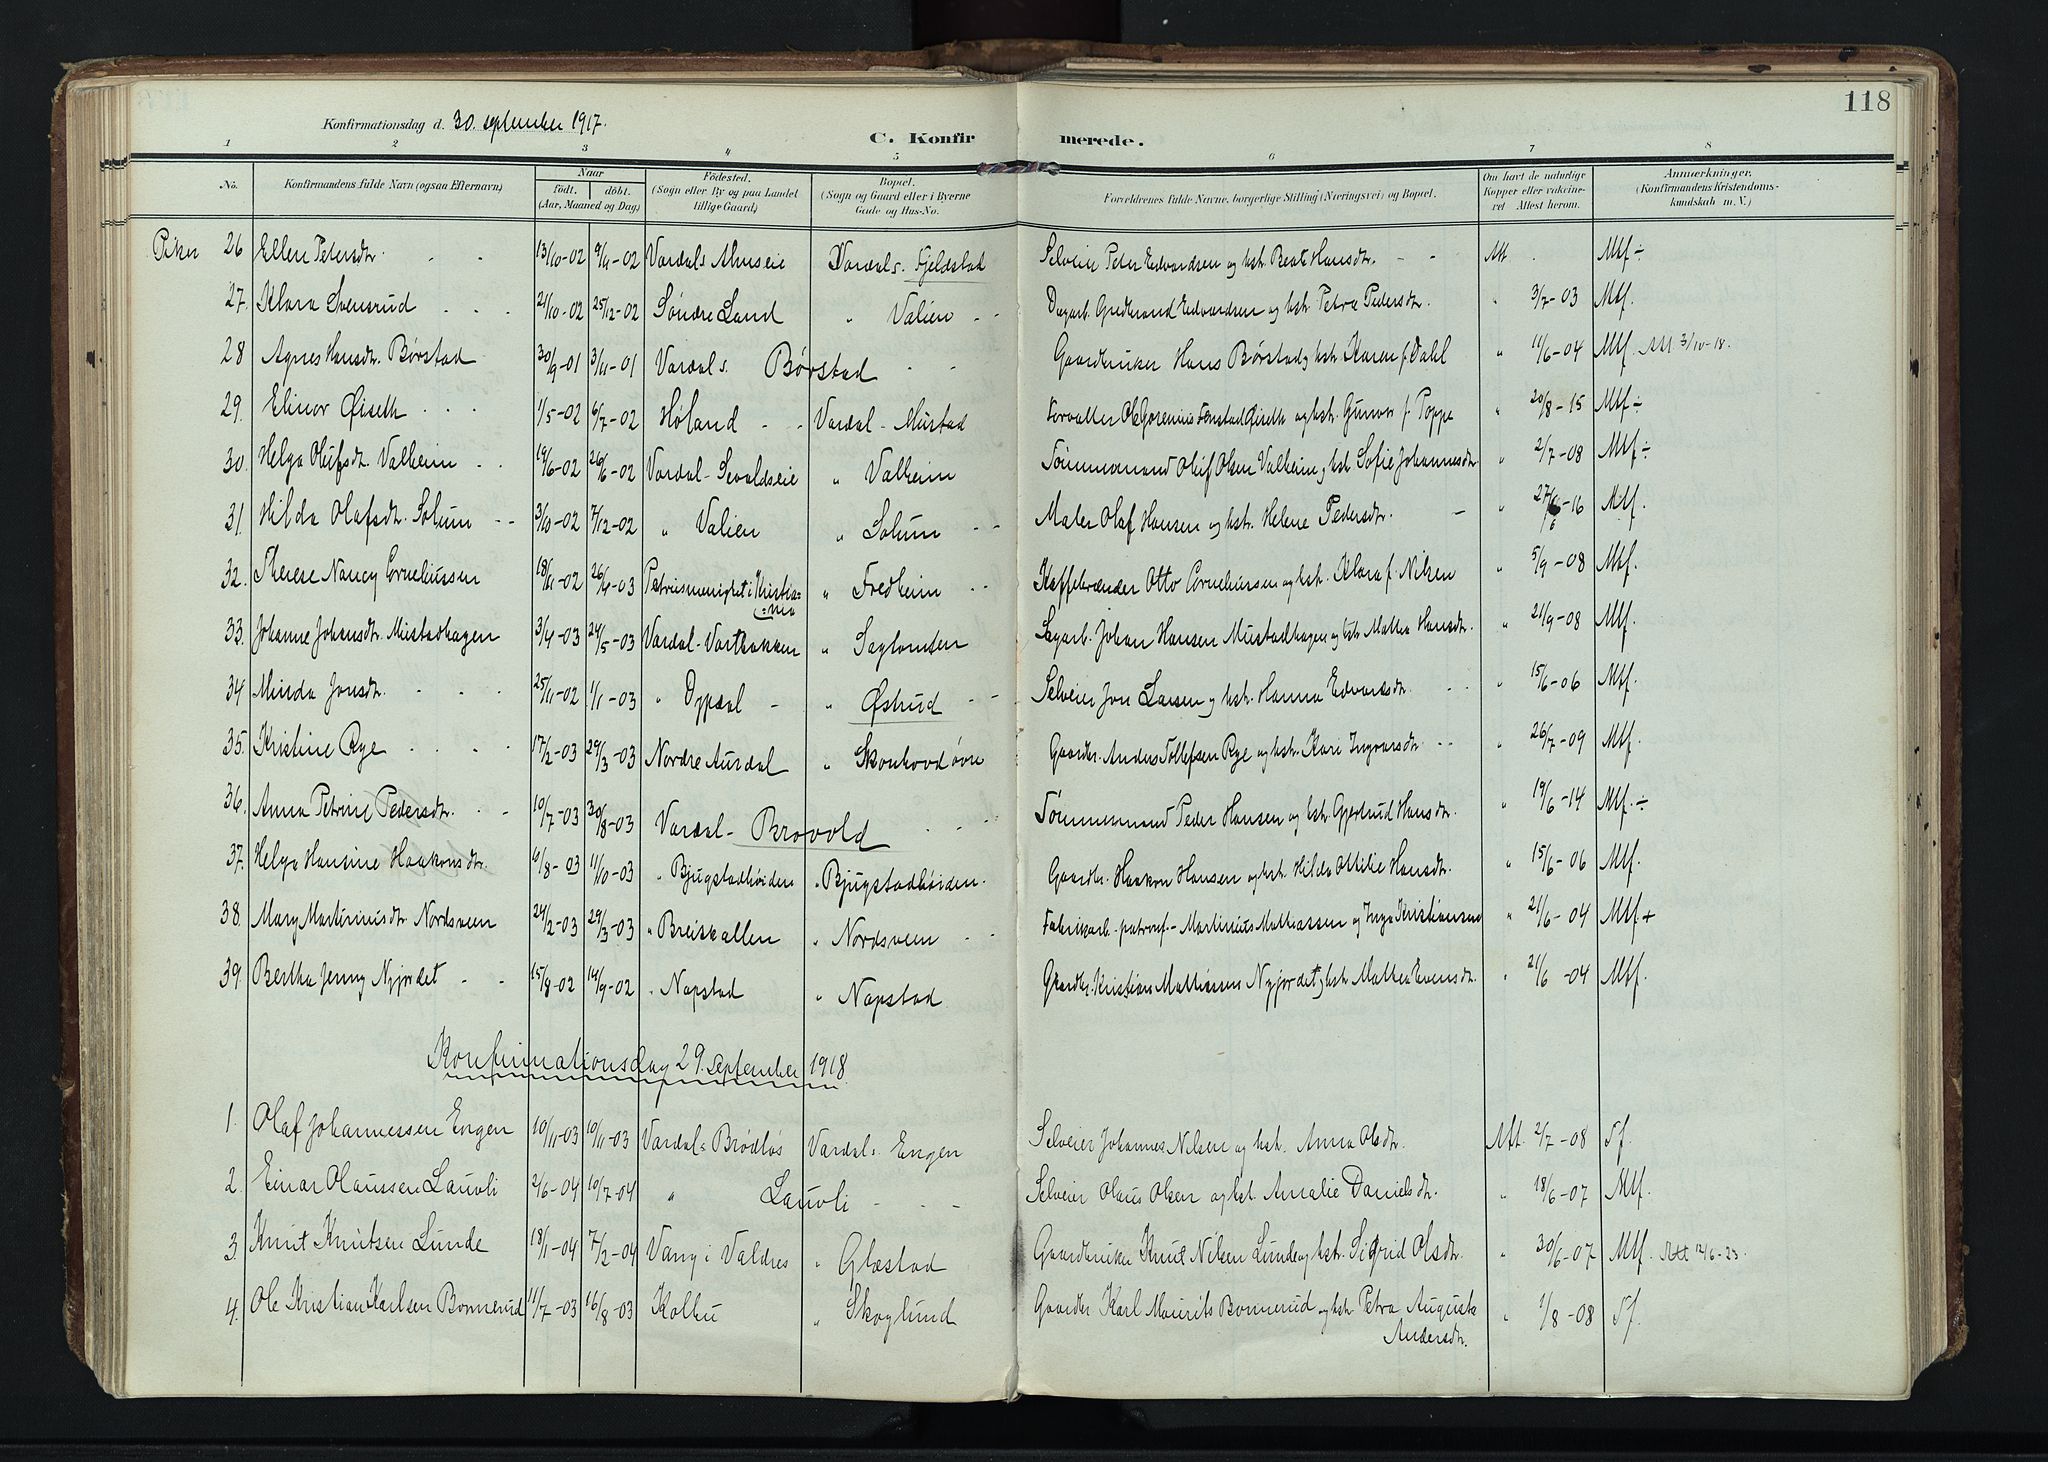 118
Konfirmationsdag d. 30. september 1917.
C. Konfirmerede.
1 2 3 4 5 6 7 8
No. Konfirmandens fulde Navn (ogsaa Efternavn) Naar født. døbt. (Aar, Maaned og Dag) Fødested. (Sogn eller By og paa Landet tillige Gaard) Bopæl. (Sogn og Gaard eller i Byerne Gade og Hus-No. Forældrenes fulde Navne, borgerlige Stilling (Næringsvei) og Bopæl. Om havt de naturlige Kopper eller vakcineret Attest herom. Anmærkninger. (Konfirmandens Kristendomskundskab m. V.)
Piker 26 Ellen Petersdtr. 13/10-02 9/11-02 Vardal s. Ahuseie Vardal s. Fjeldstad Selveier Peter Edvardsen og hst. Beate Hansdtr. Att. Mtf ÷
27. Klara Svensrud 21/10-02 25/12-02 Søndre Land " Valien Dagarb. Gudbrand Edvardsen og hst. Petra Pedersdtr. " 3/7-03 Mtf.
28 Agnes Hansdtr. Børstad 30/9-01 3/11-01 Vardal s. Børstad Gaardbruker Hans Børstad og hst. Karen f. Dahl " 11/6-04 Mtf. Att 3/10-18.
29. Elinor Øiseth 1/5-02 6/7-02 Høland Vardal - Mustad Forvalter Ole Øiseth og hst. Gunvor f. Poppe " 20/8-15 Mtf ÷
30. Helga Olufsdtr. Valheim 19/6-02 26/6-02 Vardal - Sevaldseie " Valheim Tømmermand Oluf Olsen Valheim og hst. Sofie Johannesdtr. " 2/7-08 Mtf ÷
31. Hilda Olafsdtr. Solum 3/10-02 7/12-02 " Valien " Solum Maler Olaf Hansen og hst. Helene Pedersdtr. " 27/6-16 Mtf.
32. Therese Nancy Corneliussen 18/11-02 26/4-03 Petrusmenighet i Kristiania " Fredheim Kaffebrænder Otto Corneliussen og hst. Klara f. Nilsen " 5/9-08 Mtf.
33. Johanne Johansdtr. Mustadhagen 3/4-03 24/5-03 Vardal - Vartbakken " Sagtomten Sagarb. Johan Hansen Mustadhagen og hst. Mathea Hansdtr. " 21/9-08 Mtf.
34 Minda Jonsdtr. 25/11-02 1/1-03 " Oppdal " Østrud Selveier Jon Larsen og hst. Hanna Edvardsdtr. " 15/6-06 Mtf.
35. Kristine Rye 17/2-03 29/3-03 Nordre Aurdal " Skonhovd øvre Gaardbr. Anders Tollefsen Rye og hst. Kari Ingvarsdtr. " 26/7-09 Mtf.
36. Anna Petrine Pedersdtr. 10/7-03 30/8-03 Vardal - Brovold Tømmermand Peder Hansen og hst. Gjertrud Hansdtr. " 19/6-14 Mtf. ÷
37. Helga Hansine Haakonsdtr. 6/8-03 11/10-03 " Bjugstadhøiden " Bjugstadhøiden. Gaardbr. Haakon Hansen og hst. Hilda Otilie Hansdtr. " 15/6-06 Mtf.
38. Mary Martiniusdtr. Nordsveen 24/2-03 29/3-03 " Breiskallen " Nordsveen Fabrikarb. - patronf. - Martinius Mathiassen og Inga Kristiansen " 21/6-04 Mtf +
39. Bertha Jenny Nyjordet 15/8-02 14/9-02 " Napstad " Napstad Gaardbr. Kristian Mathiassen Nyjordet og hst. Mathea Evensdtr. " 21/6-04 Mtf.
Konfirmationsdag 29. september 1918
1. Olaf Johannessen Engen 10/11-03 10/11-03 Vardal s. Brødløs Vardal s. Engen Selveier Johannes Nilsen og hst. Anna Olsdtr. Att. 2/7-08 Tf.
2. Einar Olaussen Lauvli 2/6-04 10/7-04 " Lauvli Selveier Olaus Olsen og hst. Amalie Danielsdtr. " 18/6-07 Mtf.
3. Knut Knutsen Lunde 18/1-04 7/2-04 Vang i Valdres " Glæstad Gaardbruker Knut Nilsen Lunde og hst. Sigrid Olsdtr. " 30/6-07 Mtf. Att 12/6-23.
4. Ole Kristian Karlsen Bonnerud 11/7-03 16/8-03 Kolbu " Skoglund Gaardbr. Karl Maurits Bonnerud og hst. Petra Augusta Andersdtr. " 1/8-08 Tf.